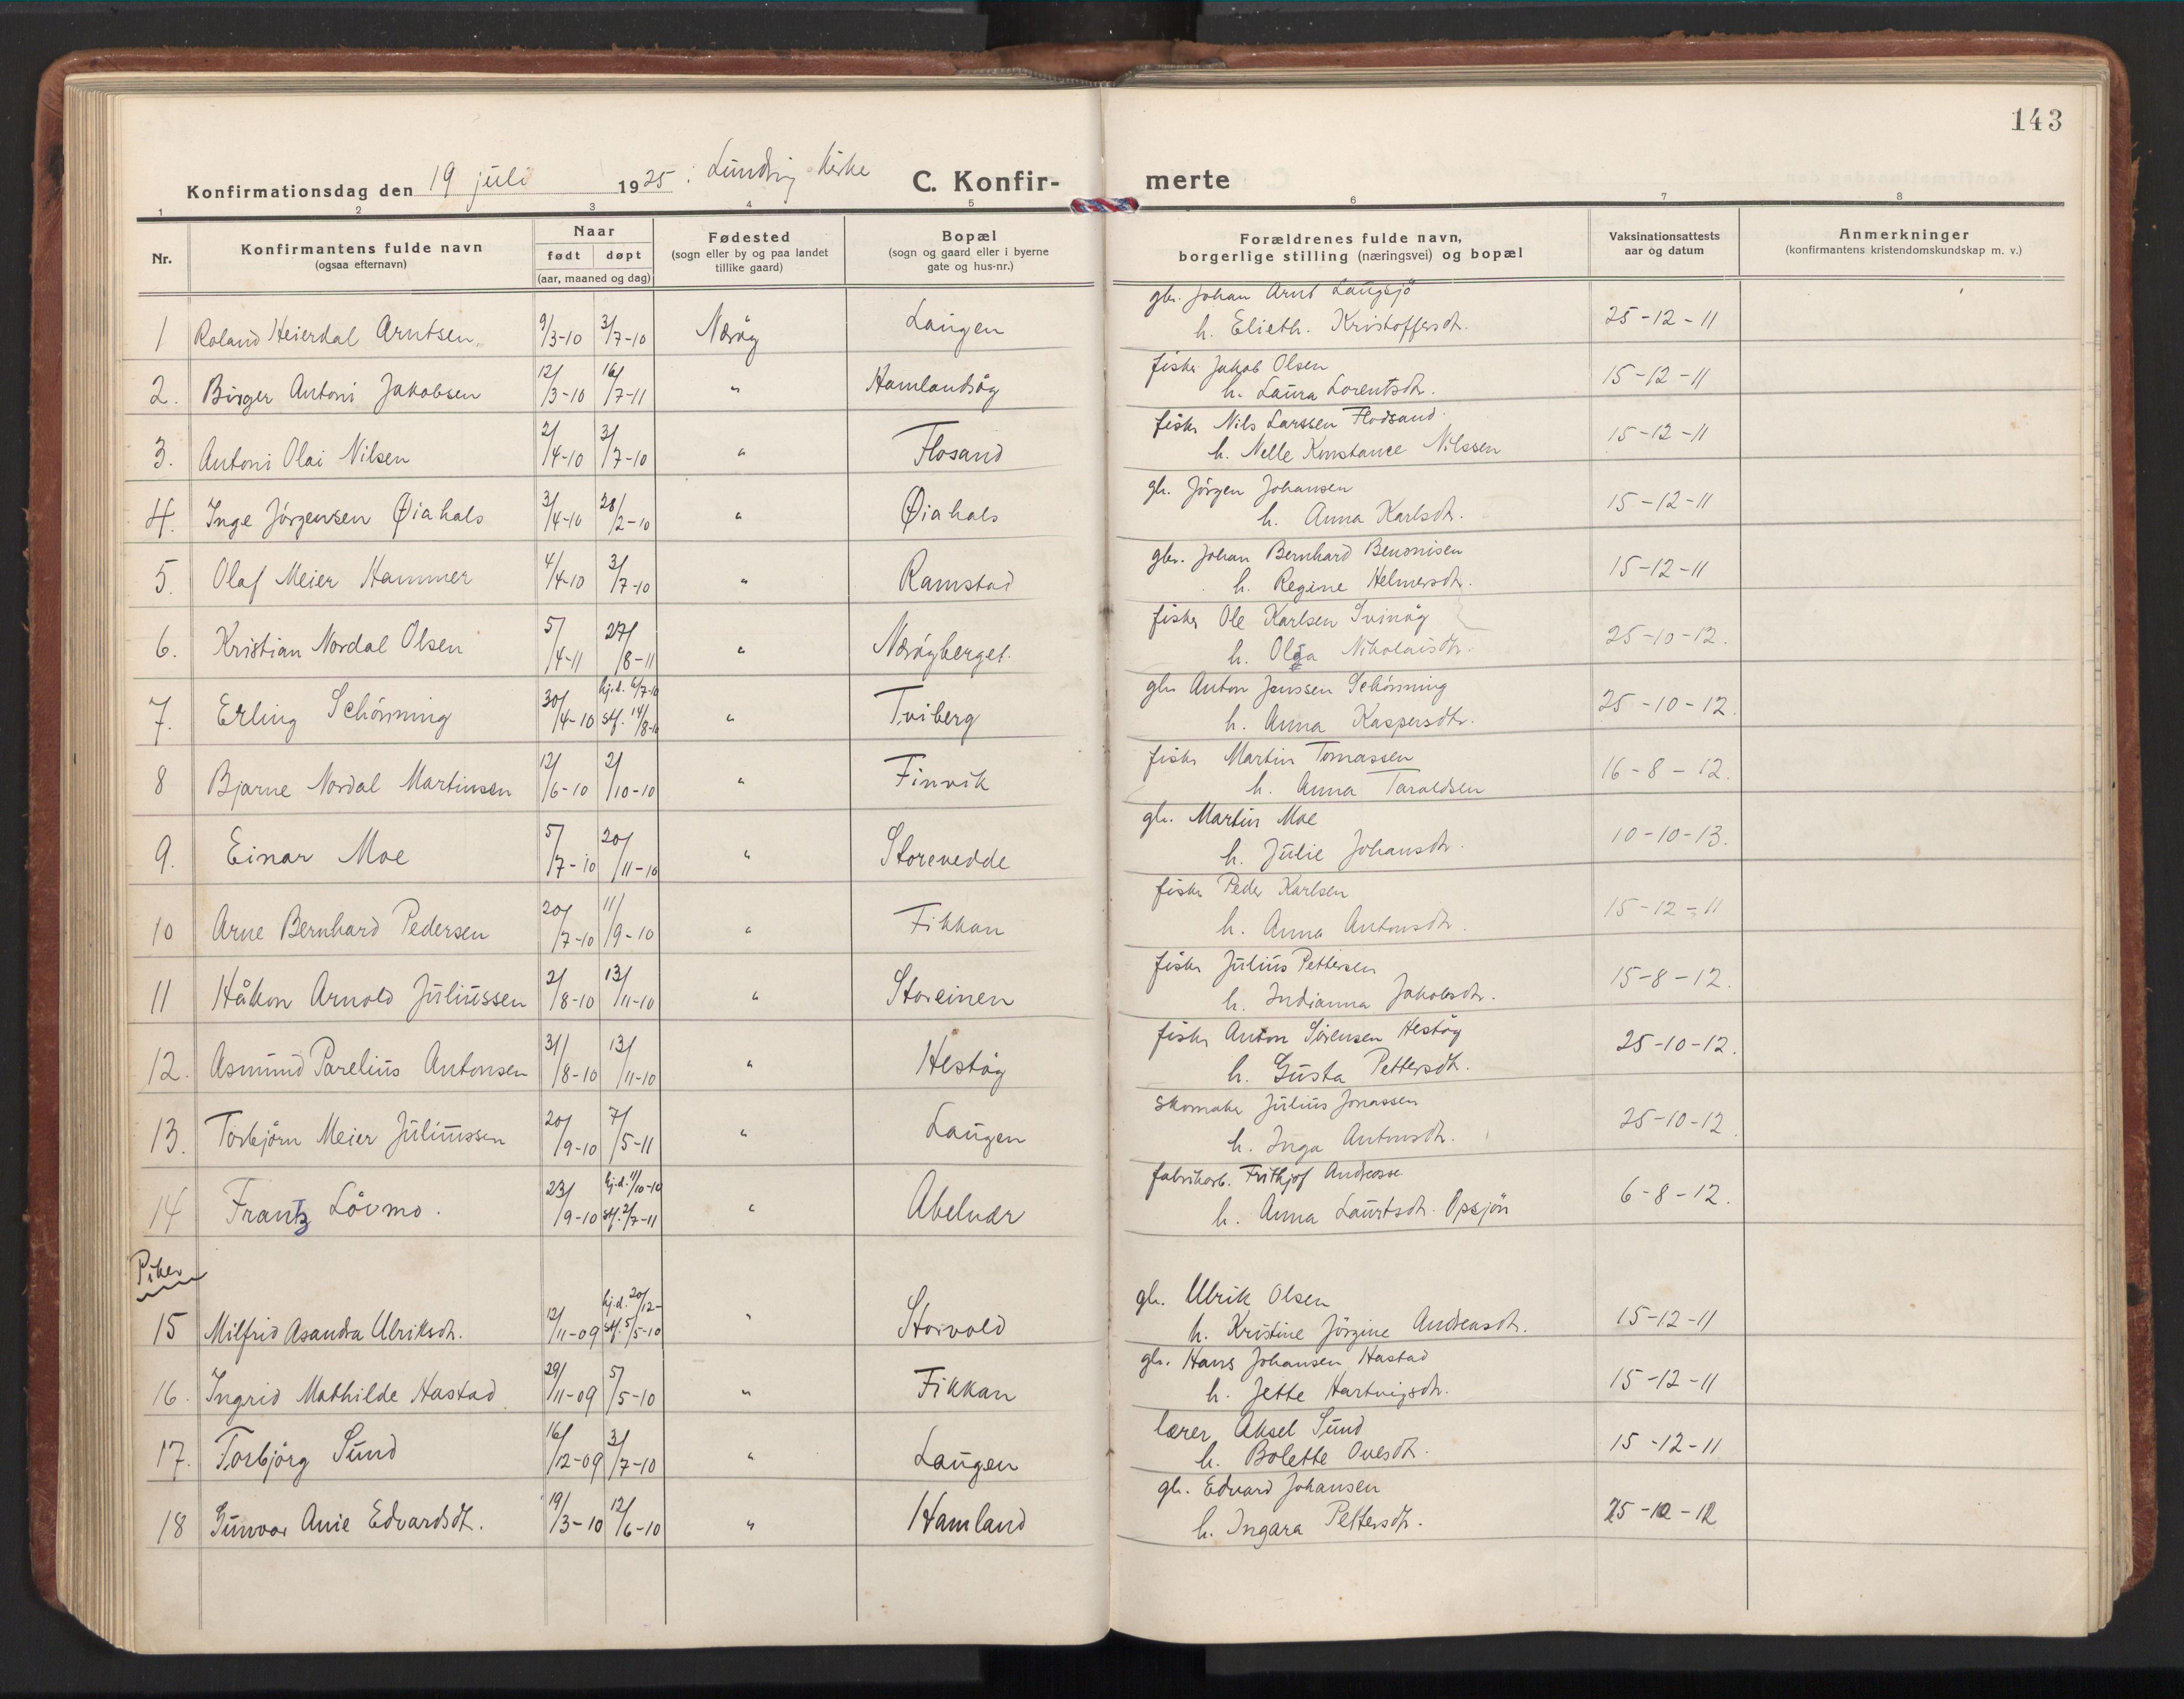 143
Konfirmationsdag den 19 juli 1925 i Lundring Kirke C. Konfir- merte
1 2 3 4 5 6 7 8
Nr. Konfirmantens fulde navn (ogsaa efternavn) Naar født døpt (aar, maaned og dag) Fødested (sogn eller by og paa landet tillike gaard) Bopæl (sogn og gaard eller i byerne gate og hus-nr.) Forældrenes fulde navn, borgerlige stilling (næringsvei) og bopæl Vaksinationsattests aar og datum Anmerkninger (konfirmantens kristendomskundskap m. v.)
1 Roland Heierdal Arntsen 9/3-10 3/7-10 Nærøy Laugen gbr. Johan Arnt Laugsjö
h. Elieth. Kristoffersdtr. 25-12-11
2. Birger Antoni Jakobsen 12/3-10 16/7-11 " Hamlandsøy fisker Jakob Olsen
h. Laura Lorentsdtr. 15-12-11
3. Antoni Olai Nilsen 2/4-10 3/7-10 " Flosand fisker Nils Larssen Flodsand
h. Nelle Konstance Nilssen 15-12-11
4. Inge Jörgensen Øiahals 3/4-10 28/2-10 " Øiahals gbr. Jörgen Johansen
h. Anna Karlsdtr. 15-12-11
5. Olaf Meier Hammer 4/4-10 3/7-10 " Ramstad gbr. Johan Bernhard Benonisen
h. Regine Helmersdtr. 15-12-11
6. Kristian Nordal Olsen 5/4-11 27/8-11 " Nærøyberget fisker Ole Karlsen Svinöy
h. Olga Nikolaisdtr. 25-10-12.
7. Erling Schönning 30/4-10 hj.d. 6/7-10 stf. 14/8-10 " Tviberg gbr Anton Janssen Schönning
h. Anna Kaspersdtr. 25-10-12.
8 Bjarne Nordal Martinsen 12/6-10 2/10-10 " Finvik fisker Martin Tomassen
h. Anna Taraldsen 16-8-12.
9. Einar Moe 5/7-10 20/11-10 " Storevedde gbr. Martin Moe
h. Julie Johansdtr. 10-10-13.
10 Arne Bernhard Pedersen 20/7-10 11/9-10 " Fikkan fisker Peder Karlsen
h. Anna Antonsdtr. 15-12-11
11 Håkon Arnold Juliussen 2/8-10 13/11-10 " Storeinen fisker Julius Pettersen
h. Indianna Jakobsdtr. 15-8-12.
12. Asmund Parelius Antonsen 31/8-10 13/11-10 " Hestöy fisker Anton Sörensen Hestöy
h. Gusta Pettersdtr. 25-10-12.
13. Torbjörn Meier Juliussen 20/9-10 7/5-11 " Laugen Skomaker Julius Jonassen
h. Inga Antonsdtr. 25-10-12.
14 Frantz Lövmo. 23/9-10 hj.d. 11/10-10 stf. 2/7-11 " Abelvær fabrikarb. Frithjof Andreasse
h. Anna Laurtsdtr. Opsjön 6-8-12.
Piker
15 Milfrid Asandra Ulriksdtr. 12/11-09 hj.d. 20/12- stf. 5/5-10 " Storvold gbr. Ulrik Olsen
h. Kristine Jörgine Andreasdtr. 15-12-11
16. Ingrid Mathilde Hastad 29/11-09 5/5-10 " Fikkan gbr. Hans Johansen Hastad
h. Jette Hartvigsdtr. 15-12-11
17. Torbjörg Sund 16/12-09 3/7-10 " Laugen lærer Aksel Sund
h. Bolette Ovesdtr. 15-12-11
18 Gunvor Anie Edvardsdtr. 19/3-10 12/6-10 " Hamland gbr. Edvard Johansen
h. Ingara Pettersdtr. 25-10-12